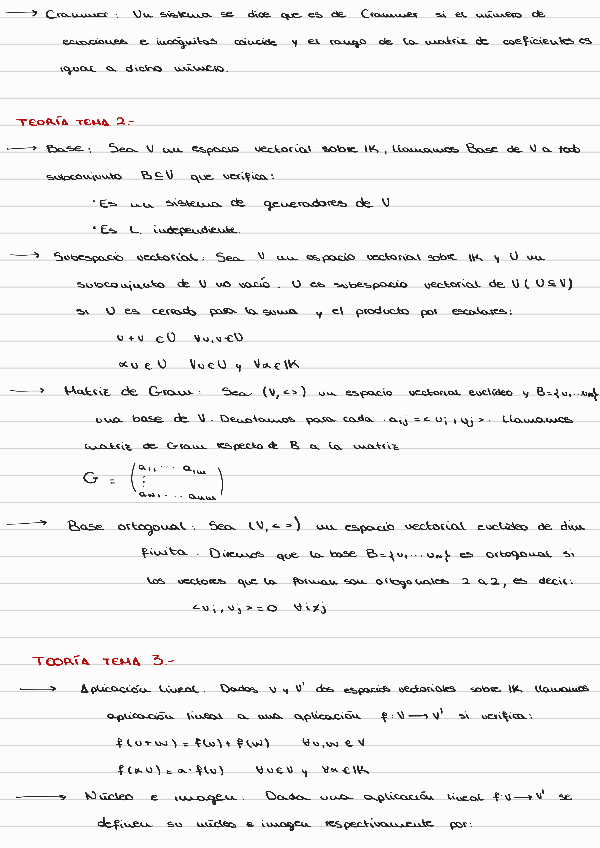 → Crammer: Un sistema se dice que es de Crammer si el número de
ecuaciones e incógnitas coincide y el rango de la matriz de coeficientes es
igual a dicho número.
TEORÍA TEMA 2.-
→ Base: Sea V un espacio vectorial sobre IK, llamamos Base de V a todo
subconjunto B⊆V que verifica:
· Es un sistema de generadores de V
· Es L. independiente.
→ Subespacio vectorial: Sea V un espacio vectorial sobre IK y U un
subconjunto de V no vacío. U es subespacio vectorial de V (U≤V)
si U es cerrado para la suma y el producto por escalares:
u+v ∈U ∀u,v∈U
αu∈U ∀u∈U y ∀α∈IK
→ Matriz de Gram: Sea (V,<>) un espacio vectorial euclídeo y B={v1...vm}
una base de V. Denotamos para cada aij=<vi,vj>. Llamamos
matriz de Gram respecto de B a la matriz
G = (a11 ... a1m
⋮
am1 ... amm)
→ Base ortogonal: Sea (V,<>) un espacio vectorial euclídeo de dim
finita. Diremos que la base B={v1...vm} es ortogonal si
los vectores que la forman son ortogonales 2 a 2, es decir:
<vi,vj>=0 ∀i≠j
TEORÍA TEMA 3.-
→ Aplicación lineal: Dados V y V' dos espacios vectoriales sobre IK llamamos
aplicación lineal a una aplicación f:V→V' si verifica:
f(u+w)=f(u)+f(w) ∀u,w∈V
f(αu)=α·f(u) ∀u∈V y ∀α∈IK
→ Núcleo e imagen: Dada una aplicación lineal f:V→V' se
definen su núcleo e imagen respectivamente por: